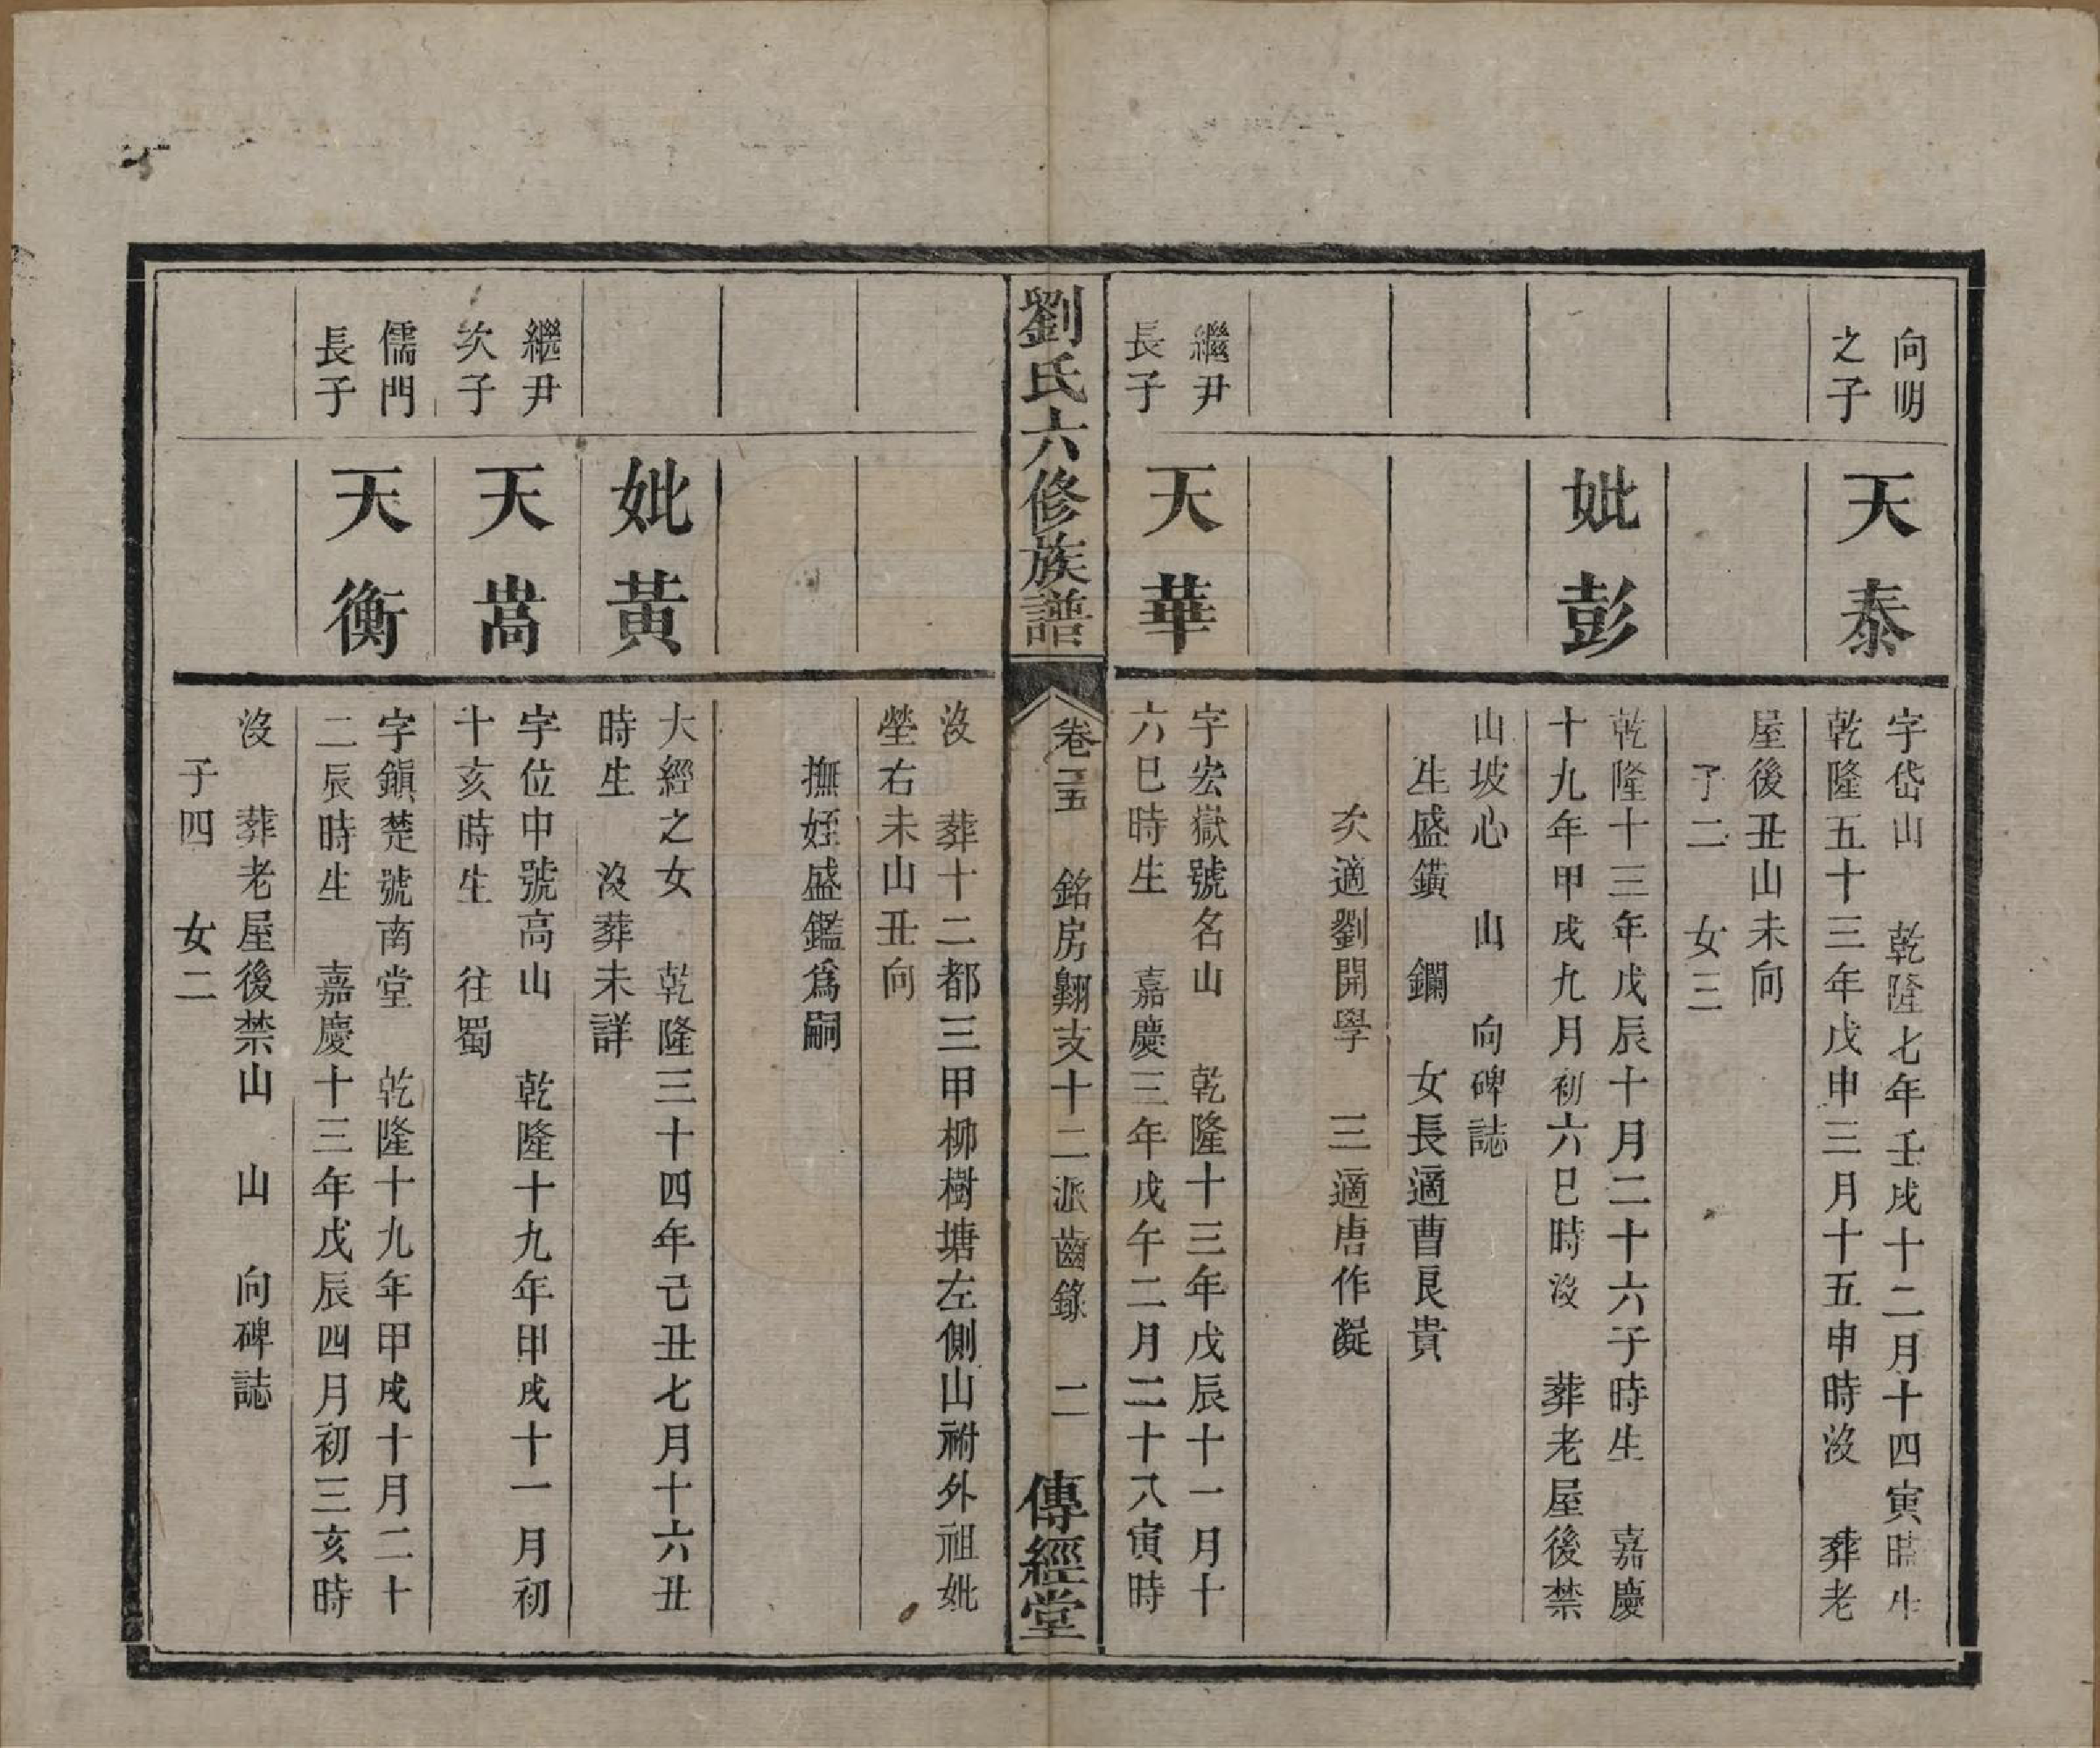 向明
之子
天泰
字岱山　乾隆七年壬戌十二月十四寅時生
乾隆五十三年戊申三月十五申時沒　葬老
屋後丑山未向
子二　女三
妣彭
乾隆十三年戊辰十月二十六子時生　嘉慶
十九年甲戌九月初六巳時沒　葬老屋後禁
山坡心　山　向碑誌
生盛鐄　鐗　女長適曹良貴
次適劉開學　三適唐作凝
繼尹
長子
天華
字宏嶽號名山　乾隆十三年戊辰十一月十
六巳時生　嘉慶三年戊午二月二十八寅時
劉氏六修族譜
卷二五　銘房翺支十二派齒錄　二
傳經堂
沒　葬十二都三甲柳樹塘左側山祔外祖妣
塋右未山丑向
撫姪盛鑑爲嗣
妣黃
大經之女　乾隆三十四年己丑七月十六丑
時生　沒葬未詳
繼尹
次子
天嵩
字位中號高山　乾隆十九年甲戌十一月初
十亥時生　往蜀
儒門
長子
天衡
字鎭楚號南堂　乾隆十九年甲戌十月二十
二辰時生　嘉慶十三年戊辰四月初三亥時
沒　葬老屋後禁山　山　向碑誌
子四　女二